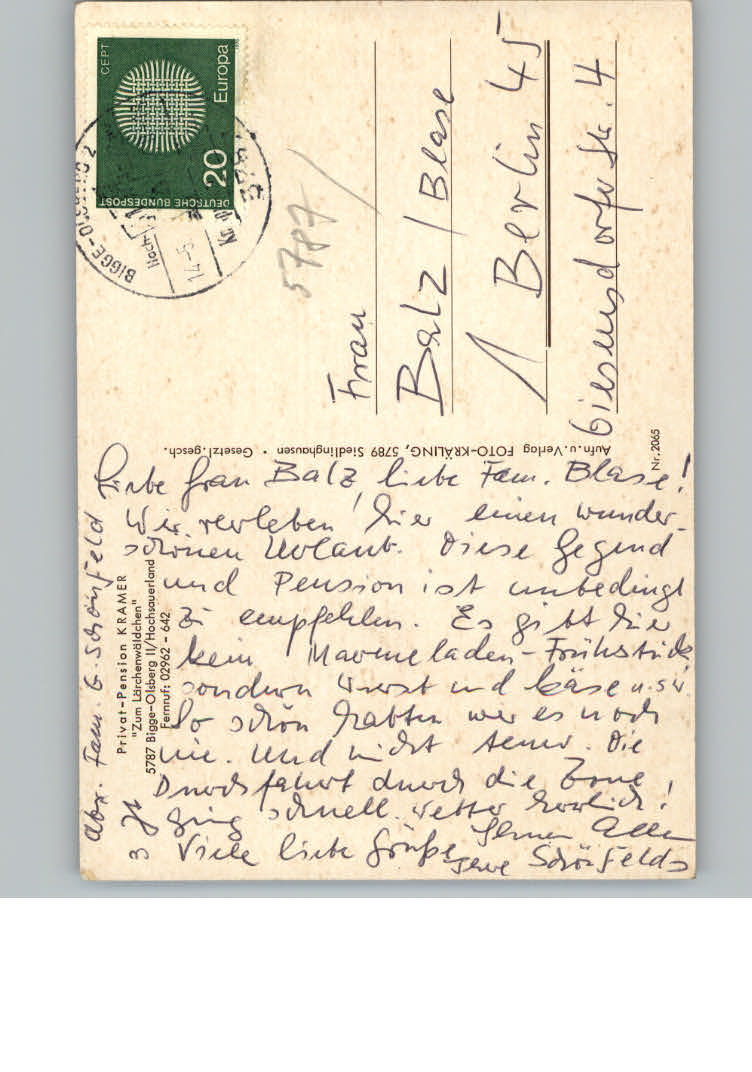 Liebe Frau Balz, liebe Fam. Blase!
Wir verleben hier einen wunder-
schönen Urlaub. Diese Gegend
und Pension ist unbedingt
zu empfehlen. Es gibt hier
kein Marmeladen-Frühstück,
sondern Wurst und Käse u.s.w.
So schön hatten wir es noch
nie. Und nicht teuer. Die
Durchfahrt durch die Zone
ging schnell. Wetter herrlich!
Viele liebe Grüße Ihnen Allen
Ihre Schönfelds
Abs. Fam. G. Schönfeld
Privat-Pension KRAMER
"Zum Lärchenwäldchen"
5787 Bigge-Olsberg II/Hochsauerland
Fernruf: 02962 - 642
Aufn. u. Verlag FOTO-KRÄLING, 5789 Siedlinghausen • Gesetzl. gesch.
Nr. 2065
CEPT
Europa
20
DEUTSCHE BUNDESPOST
BIGGE-OLSBERG 2
14.-5.
5787
Frau
Balz / Blase
1 Berlin 45
Giesensdorfer Str. 4